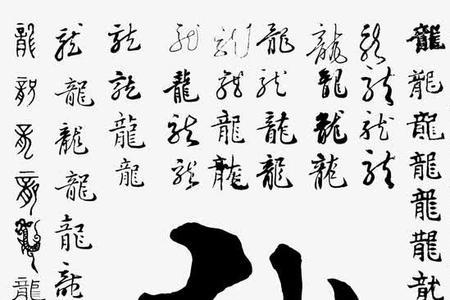 龍龍龍龍龍龍龍
龍龍龍龍
龍龍龍龍
龍龍龍龍
龍龍龍龍
龍龍龍龍
龍龍龍龍
龍龍龍龍龍龍
龍龍龍龍龍龍